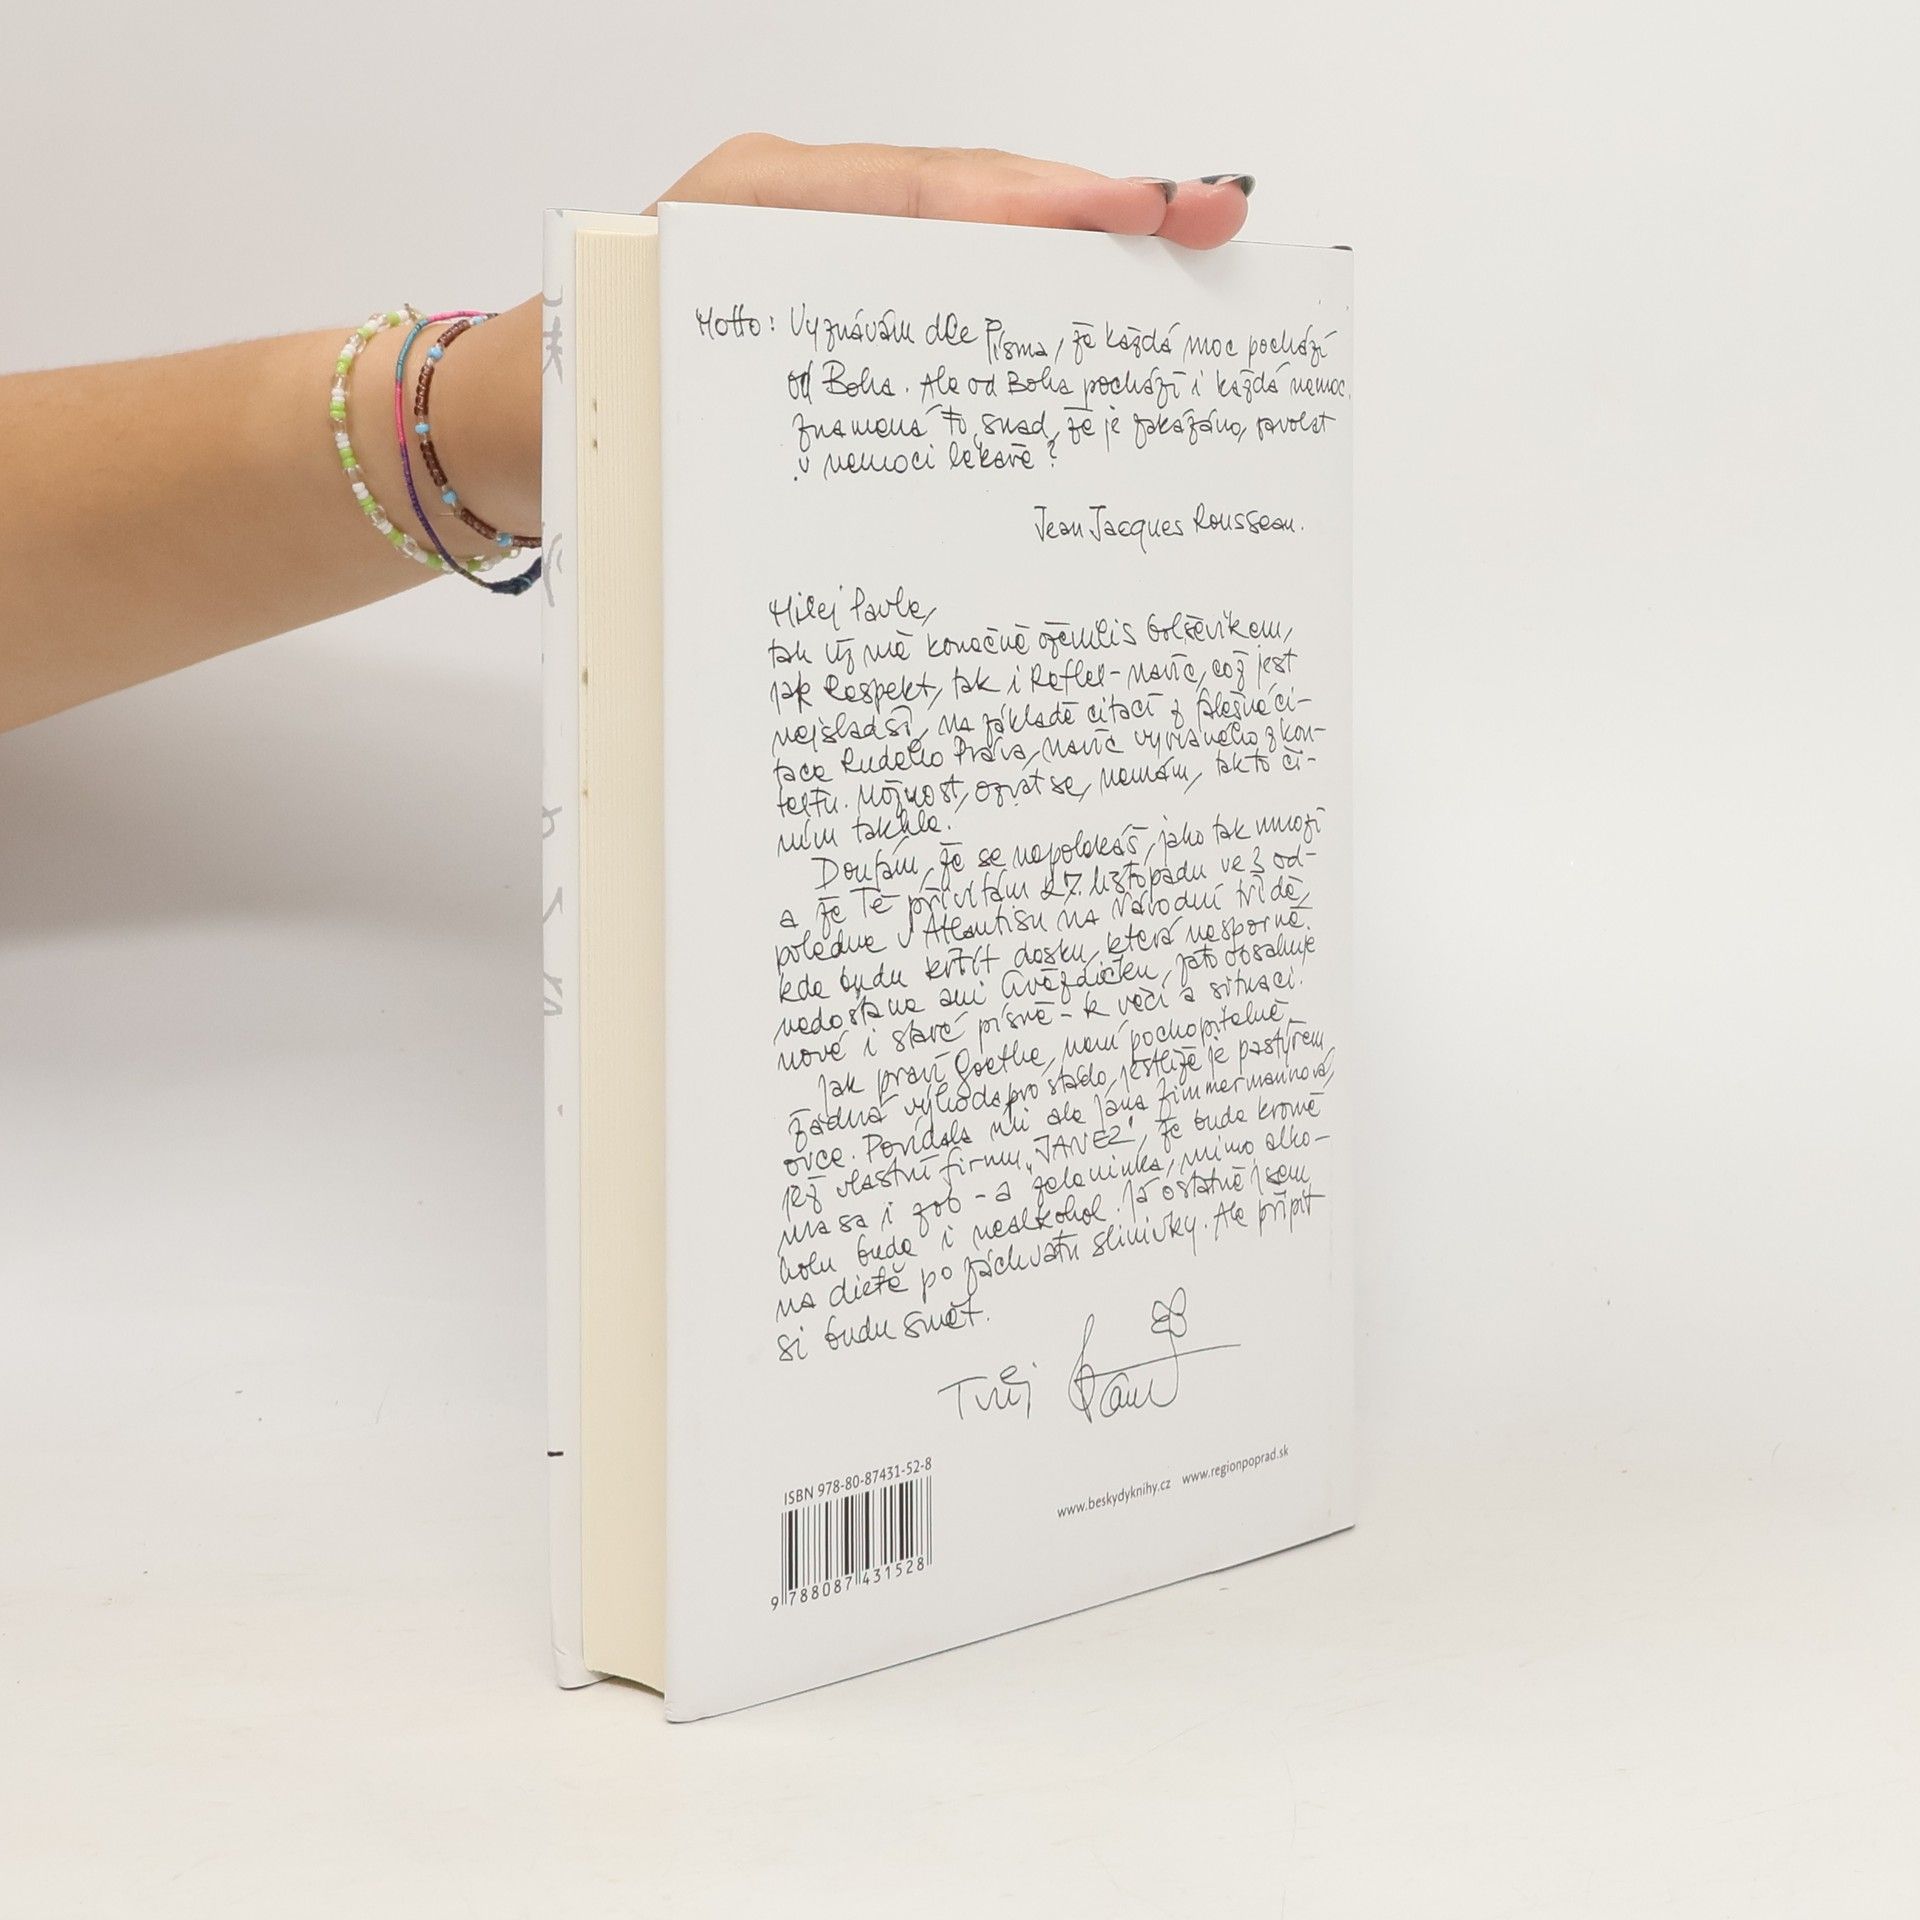 Motto: Vyznávám dle Písma, že každá moc pochází
od Boha. Ale od Boha pochází i každá nemoc.
Znamená to snad, že je zakázáno, zavolat
v nemoci lékaře?
Jean Jacques Rousseau.
Milej Pavle,
tak už mě konečně ožénili s bolševikem,
jak Respekt, tak i Reflex - navíc, což jest
nejsladší, na základě citací z falešné ci-
tace Rudého Práva, navíc vyrvaného z kon-
textu. Možnost, ozvat se, nemám, takto či-
ním takhle.
Doufám, že se nepolekáš, jako tak mnozí
a že Tě přivítám 27. listopadu ve 3 od-
poledne v Atlantisu na Národní třídě,
kde budu křtít desku, která nesporně
nedostane ani hvězdičku, jato obsahuje
nové i staré písně - k věci a situaci.
Jak praví Goethe, není pochopitelně
žádná výhoda pro stádo, jestliže je pastýřem
ovce. Povídala mi ale Jana Zimmermannová,
jež vlastní firmu „JANEZ", že bude kromě
masa i zob - a zeleninka, mimo alko-
holu bude i nealkohol. Já ostatně jsem
na dietě po záchvatu slinivky. Ale připít
si budu smět.
Tvůj
ISBN 978-80-87431-52-8
9 788087 431528
www.beskydyknihy.cz www.regionpoprad.sk